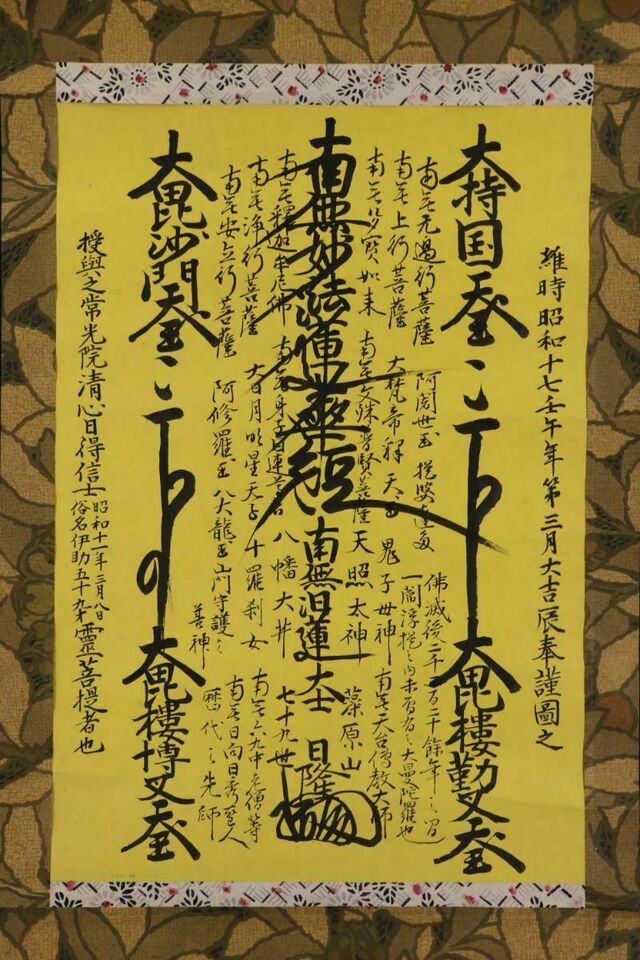 維時昭和十七壬午年第三月大吉辰奉謹圖之
大持国天玉
大毘樓勤叉天玉
南無无邉行菩薩
南無上行菩薩
南無多寳如来
南無妙法蓮華経
南無釋迦牟尼佛
南無浄行菩薩
南無安立行菩薩
阿闍世玉 提婆達多
大梵帝釋天玉 鬼子母神
南無文殊普賢菩薩 天照太神
八幡大井
大日月明星天子 十羅刹女
阿修羅玉 八大龍玉 山門守護之善神
佛滅後二千二百二十餘年之間
一閻浮提之内未曽有之大曼陀羅也
南無天台傳教大師
藻原山
南無日蓮大士
七十九世
日隆
南無六九中老僧等
南無日向日秀聖人
歴代之先師
大毘沙門天玉
大毘樓博叉天玉
授與之常光院清心日得信士
昭和十一年三月八日
俗名伊助五十九才
靈菩提者也